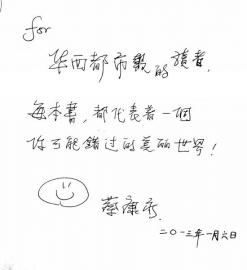 for
华西都市報的讀者,
每本書,都代表着一個
你可能錯过的美丽世界!
蔡康永
二〇一三年一月六日